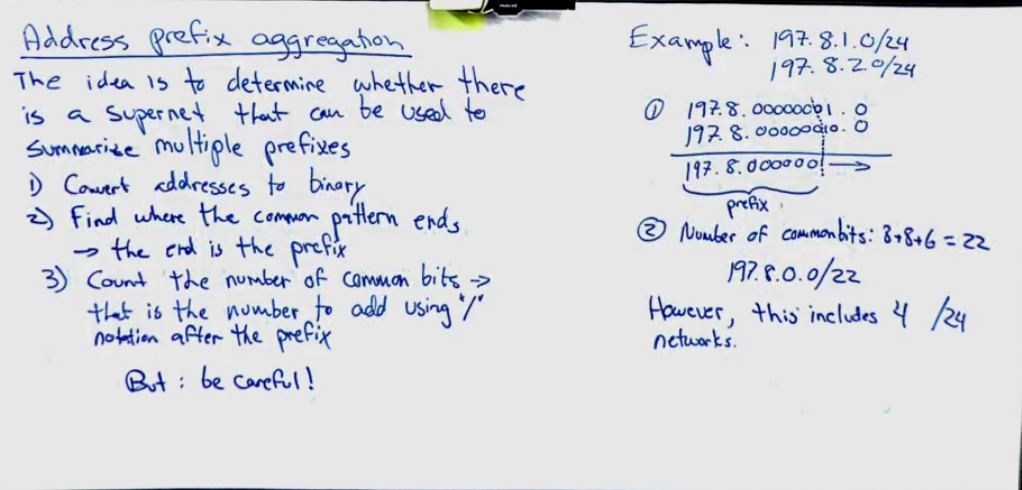 Address prefix aggregation
The idea is to determine whether there
is a supernet that can be used to
summarize multiple prefixes
1) Convert addresses to binary
2) Find where the common pattern ends
→ the end is the prefix
3) Count the number of common bits →
that is the number to add using "/"
notation after the prefix
But : be careful!
Example: 197.8.1.0/24
197.8.2.0/24
① 197.8.00000001.0
197.8.00000010.0
197.8.000000 →
prefix
② Number of common bits: 8+8+6 = 22
197.8.0.0/22
However, this includes 4 /24
networks.